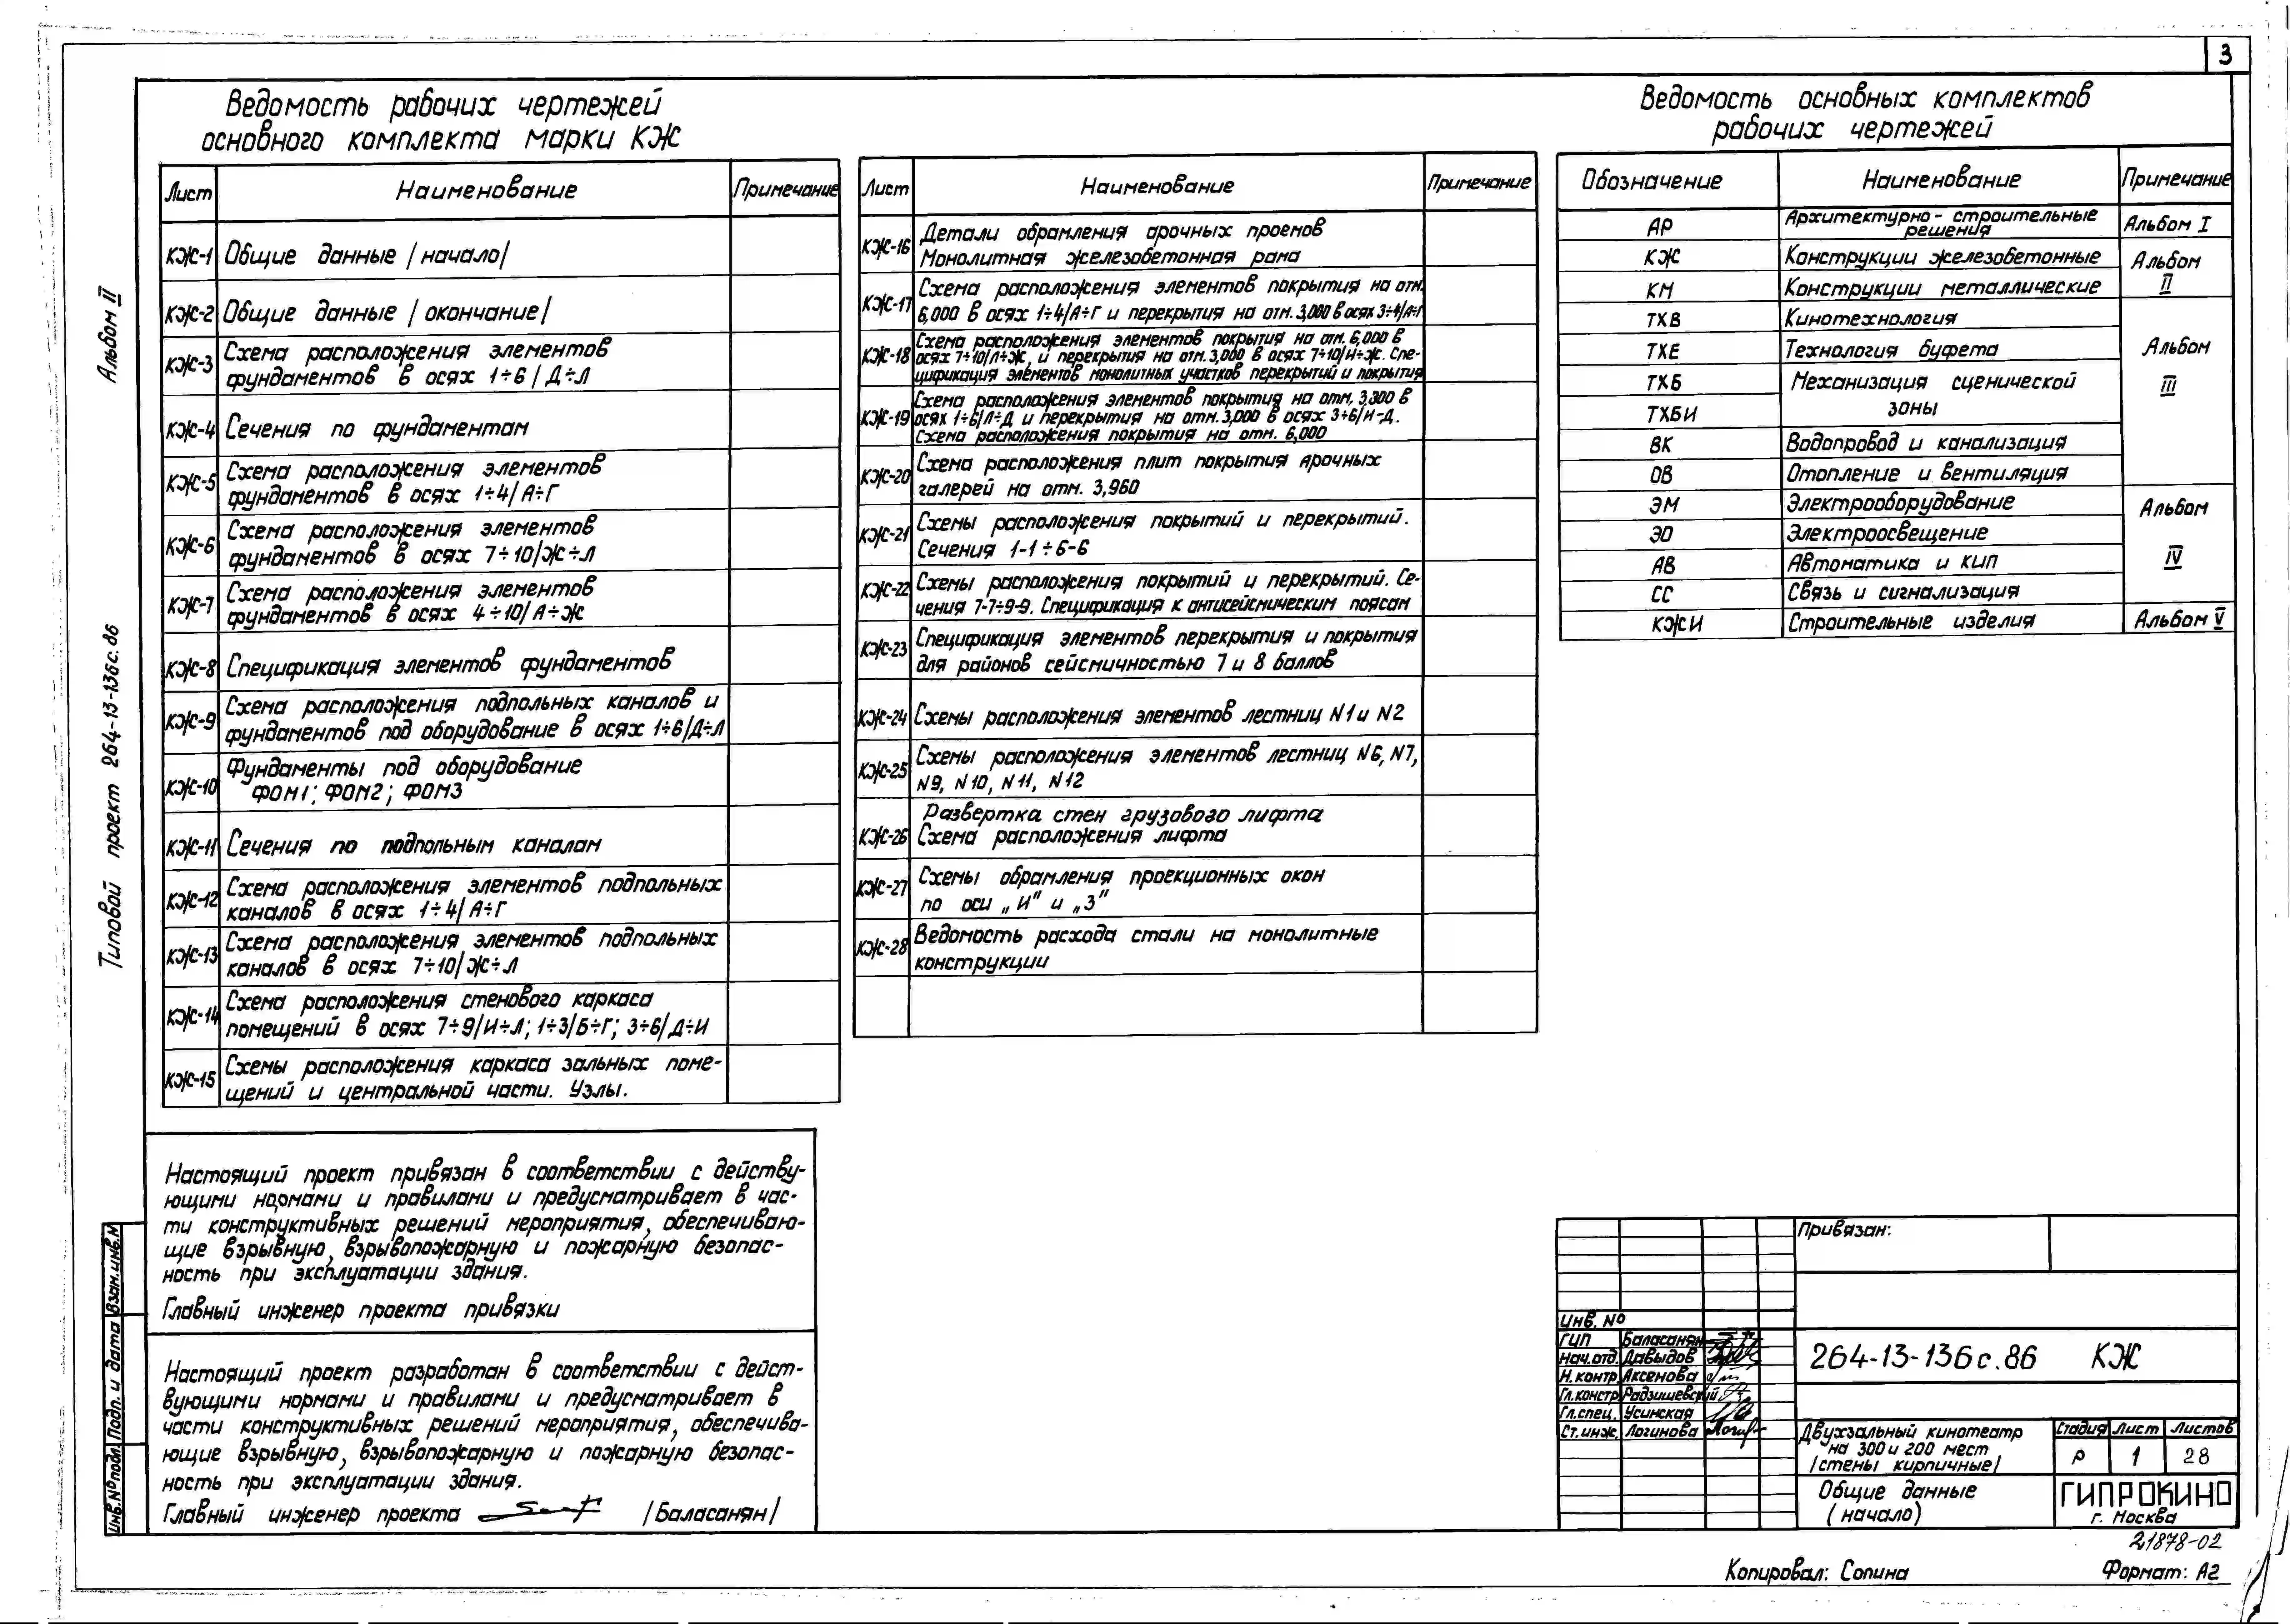 3
Альбом II
Типовой проект 264-13-136с.86
Ведомость рабочих чертежей
основного комплекта марки КЖ
Лист Наименование Примечание
КЖ-1 Общие данные /начало/
КЖ-2 Общие данные /окончание/
КЖ-3 Схема расположения элементов
фундаментов в осях 1÷6/Д÷Л
КЖ-4 Сечения по фундаментам
КЖ-5 Схема расположения элементов
фундаментов в осях 1÷4/А÷Г
КЖ-6 Схема расположения элементов
фундаментов в осях 7÷10/Ж÷Л
КЖ-7 Схема расположения элементов
фундаментов в осях 4÷10/А÷Ж
КЖ-8 Спецификация элементов фундаментов
КЖ-9 Схема расположения подпольных каналов и
фундаментов под оборудование в осях 1÷6/Д÷Л
КЖ-10 Фундаменты под оборудование
ФОМ1; ФОМ2; ФОМ3
КЖ-11 Сечения по подпольным каналам
КЖ-12 Схема расположения элементов подпольных
каналов в осях 1÷4/А÷Г
КЖ-13 Схема расположения элементов подпольных
каналов в осях 7÷10/Ж÷Л
КЖ-14 Схема расположения стенового каркаса
помещений в осях 7÷9/И÷Л; 1÷3/Б÷Г; 3÷6/Д÷И
КЖ-15 Схемы расположения каркаса зальных поме-
щений и центральной части. Узлы.
Лист Наименование Примечание
КЖ-16 Детали обрамления арочных проемов
Монолитная железобетонная рама
КЖ-17 Схема расположения элементов покрытия на отм.
6,000 в осях 1÷4/А÷Г и перекрытия на отм. 3,000 в осях 3÷4/А÷Г
КЖ-18 Схема расположения элементов покрытия на отм. 6,000 в
осях 7÷10/Л÷Ж, и перекрытия на отм. 3,000 в осях 7÷10/И÷Ж. Спе-
цификация элементов монолитных участков перекрытий и покрытия
КЖ-19 Схема расположения элементов покрытия на отм. 3,300 в
осях 1÷6/Л÷Д и перекрытия на отм. 3,000 в осях 3÷6/И-Д.
Схема расположения покрытия на отм. 6,000
КЖ-20 Схема расположения плит покрытия арочных
галерей на отм. 3,960
КЖ-21 Схемы расположения покрытий и перекрытий.
Сечения 1-1÷6-6
КЖ-22 Схемы расположения покрытий и перекрытий. Се-
чения 7-7÷9-9. Спецификация к антисейсмическим поясам
КЖ-23 Спецификация элементов перекрытия и покрытия
для районов сейсмичностью 7 и 8 баллов
КЖ-24 Схемы расположения элементов лестниц N1 и N2
КЖ-25 Схемы расположения элементов лестниц N6, N7,
N9, N10, N11, N12
КЖ-26 Развертка стен грузового лифта
Схема расположения лифта
КЖ-27 Схемы обрамления проекционных окон
по оси „И" и „З"
КЖ-28 Ведомость расхода стали на монолитные
конструкции
Ведомость основных комплектов
рабочих чертежей
Обозначение Наименование Примечание
АР Архитектурно-строительные
решения Альбом I
КЖ Конструкции железобетонные Альбом
КМ Конструкции металлические II
ТХВ Кинотехнология
ТХЕ Технология буфета Альбом
ТХБ Механизация сценической III
ТХБИ зоны
ВК Водопровод и канализация
ОВ Отопление и вентиляция
ЭМ Электрооборудование Альбом
ЭО Электроосвещение
АВ Автоматика и КИП IV
СС Связь и сигнализация
КЖИ Строительные изделия Альбом V
Настоящий проект привязан в соответствии с действу-
ющими нормами и правилами и предусматривает в час-
ти конструктивных решений мероприятия, обеспечиваю-
щие взрывную, взрывопожарную и пожарную безопас-
ность при эксплуатации здания.
Главный инженер проекта привязки
Настоящий проект разработан в соответствии с дейст-
вующими нормами и правилами и предусматривает в
части конструктивных решений мероприятия, обеспечива-
ющие взрывную, взрывопожарную и пожарную безопас-
ность при эксплуатации здания.
Главный инженер проекта /Баласанян/
Взам.инв.N
Подп. и дата
Инв.N°подл.
Привязан:
Инв. N°
ГИП Баласанян
Нач.отд. Давыдов
Н.контр. Аксенова
Гл.констр Радзишевский
Гл.спец. Усинская
Ст.инж. Логинова
264-13-136с.86 КЖ
Двухзальный кинотеатр
на 300 и 200 мест
/стены кирпичные/
Стадия Лист Листов
Р 1 28
Общие данные
(начало)
ГИПРОКИНО
г. Москва
21878-02
Копировал: Сопина Формат: А2